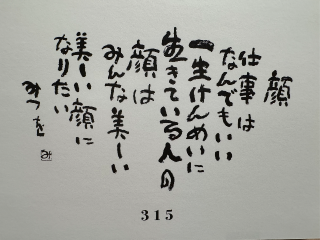 顔
仕事は
なんでもいい
一生けんめいに
生きている人の
顔は
みんな美しい
美しい顔に
なりたい
みつを
み
315